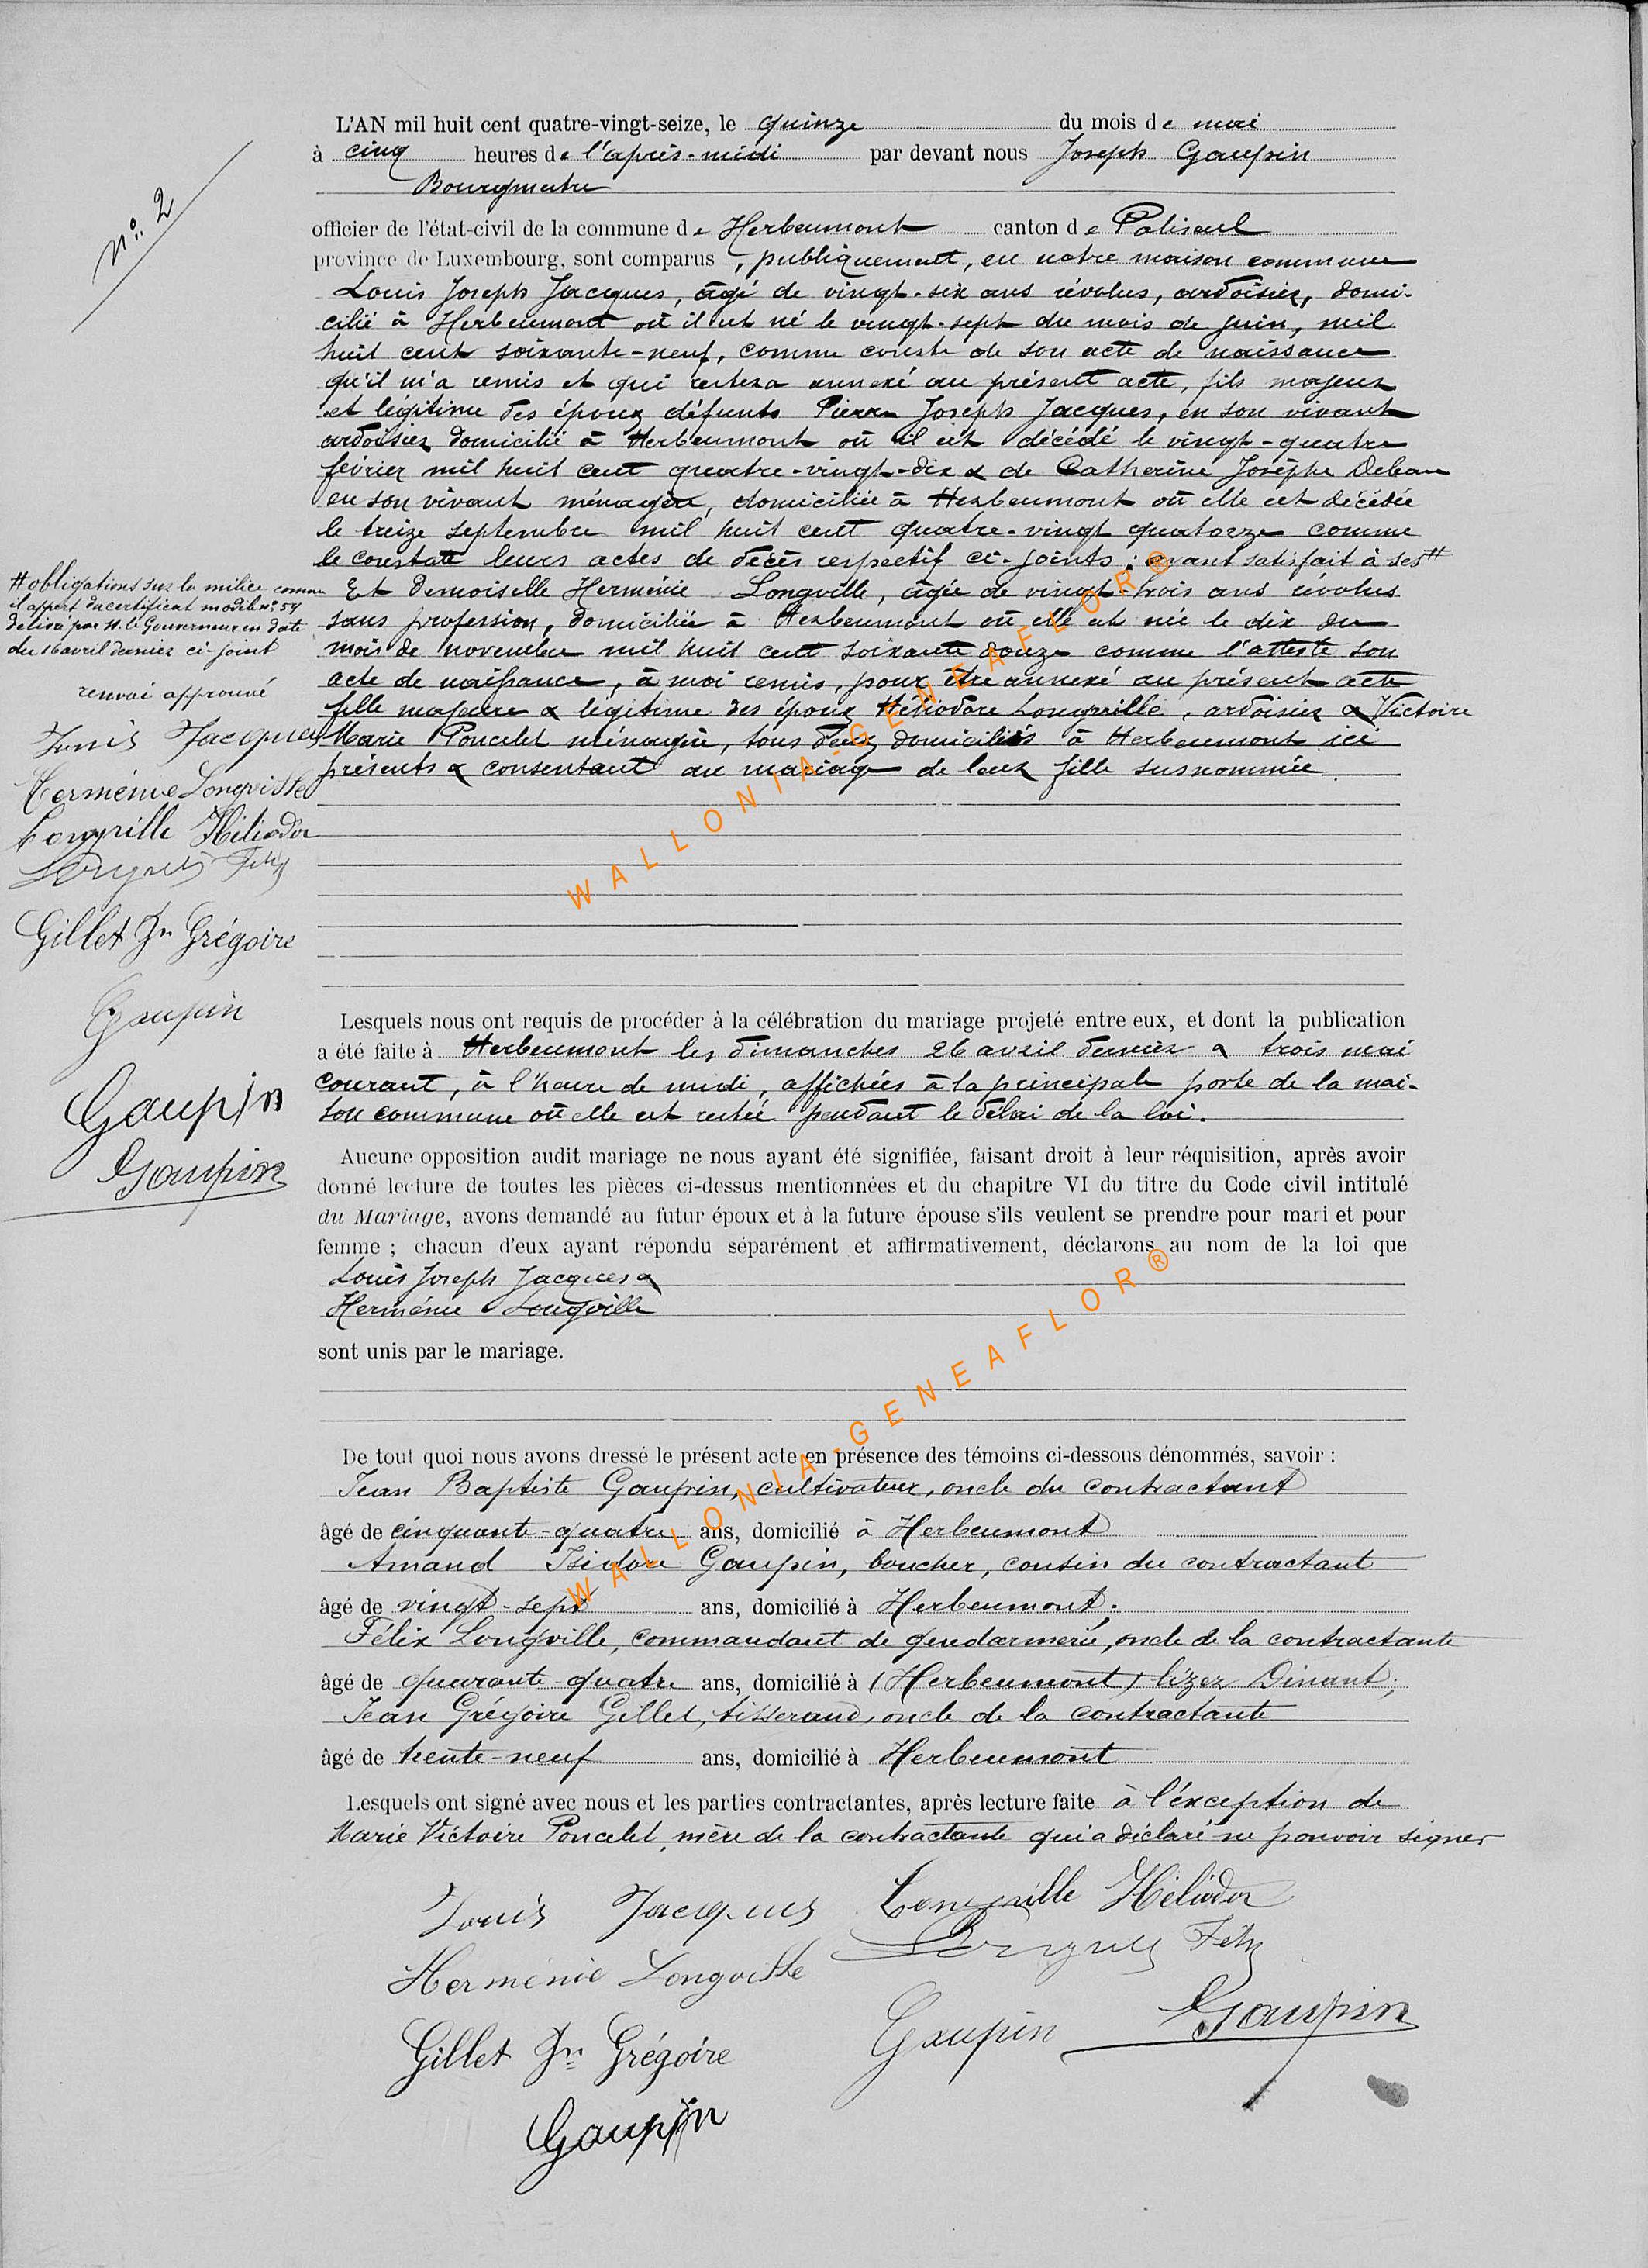 N° 2
L'AN mil huit cent quatre-vingt-seize, le quinze du mois de mai
à cinq heures de l'après-midi par devant nous Joseph Gaupin
Bourgmestre
officier de l'état-civil de la commune de Herbeumont canton de Paliseul
province de Luxembourg, sont comparus, publiquement, en notre maison commune
Louis Joseph Jacques, âgé de vingt-six ans révolus, ardoisier, domi-
cilié à Herbeumont où il est né le vingt-sept du mois de juin, mil
huit cent soixante-neuf, comme conste de son acte de naissance
qu'il m'a remis et qui restera annexé au présent acte, fils majeur
et légitime des époux défunts Pierre Joseph Jacques, en son vivant
ardoisier domicilié à Herbeumont où il est décédé le vingt-quatre
février mil huit cent quatre-vingt-dix & de Catherine Josèphe
en son vivant ménagère, domiciliée à Herbeumont où elle est décédée
le treize septembre mil huit cent quatre-vingt quatorze comme
le constate leurs actes de décès respectif ci-joints; ayant satisfait à ses #
# obligations sur la milice comme
il appert du certificat modèle n° 54
délivré par M. le Gouverneur en date
du 16 avril dernier ci-joint
renvoi approuvé
Louis Jacques
Herménie Longville
Longville Héliodor
Félix
Gillet Jn Grégoire
Gaupin
Gaupin
Gaupin
Et Demoiselle Herménie Longville, âgée de vingt-trois ans révolus
sans profession, domiciliée à Herbeumont où elle est née le dix du
mois de novembre mil huit cent soixante douze comme l'atteste son
acte de naissance, à moi remis, pour être annexé au présent acte
fille majeure & légitime des époux Héliodore Longville, ardoisier & Victoire
Marie Poncelet ménagère, tous deux domiciliés à Herbeumont ici
présents & consentant au mariage de leur fille susnommée.
Lesquels nous ont requis de procéder à la célébration du mariage projeté entre eux, et dont la publication
a été faite à Herbeumont les dimanches 26 avril dernier & trois mai
courant, à l'heure de midi, affichées à la principale porte de la mai-
son commune où elle est restée pendant le délai de la loi.
Aucune opposition audit mariage ne nous ayant été signifiée, faisant droit à leur réquisition, après avoir
donné lecture de toutes les pièces ci-dessus mentionnées et du chapitre VI du titre du Code civil intitulé
du Mariage, avons demandé au futur époux et à la future épouse s'ils veulent se prendre pour mari et pour
femme ; chacun d'eux ayant répondu séparément et affirmativement, déclarons au nom de la loi que
Louis Joseph Jacques &
Herménie Longville
sont unis par le mariage.
De tout quoi nous avons dressé le présent acte en présence des témoins ci-dessous dénommés, savoir :
Jean Baptiste Gaupin, cultivateur, oncle du contractant
âgé de cinquante-quatre ans, domicilié à Herbeumont
Amand Isidore Gaupin, boucher, cousin du contractant
âgé de vingt-sept ans, domicilié à Herbeumont.
Félix Longville, commandant de gendarmerie, oncle de la contractante
âgé de quarante-quatre ans, domicilié à (Herbeumont) lizez Dinant;
Jean Grégoire Gillet, tisserand, oncle de la contractante
âgé de trente-neuf ans, domicilié à Herbeumont
Lesquels ont signé avec nous et les parties contractantes, après lecture faite à l'exception de
Marie Victoire Poncelet, mère de la contractante qui a déclaré ne pouvoir signer
Louis Jacques Longville Héliodor
Félix
Herménie Longville
Gaupin Gaupin
Gillet Jn Grégoire
Gaupin
WALLONIA-GENEAFLOR®
WALLONIA-GENEAFLOR®